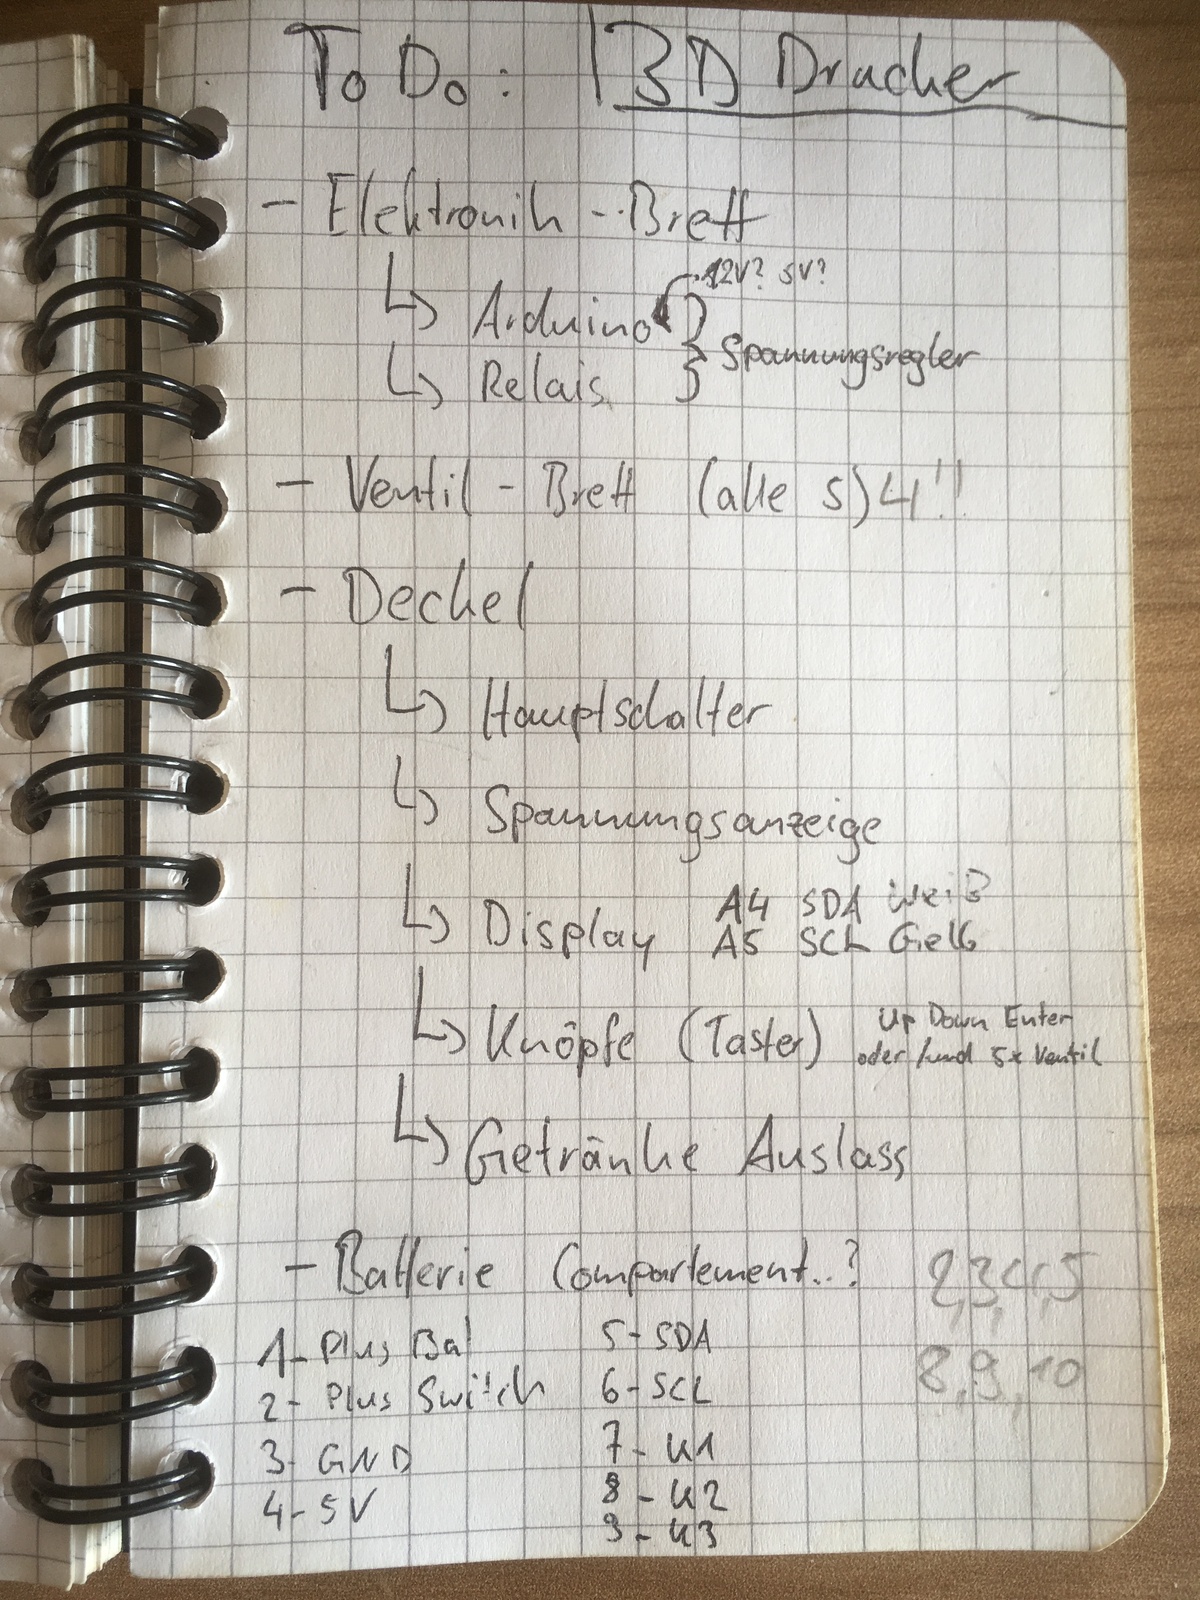 To Do: 3D Drucker
- Elektronik - Brett
12V? 5V?
↳ Arduino
} Spannungsregler
↳ Relais
- Ventil - Brett (alle 5) 4!!
- Deckel
↳ Hauptschalter
↳ Spannungsanzeige
↳ Display A4 SDA Weiß
A5 SCL Gelb
↳ Knöpfe (Taster) Up Down Enter
oder/und 5x Ventil
↳ Getränke Auslass
- Batterie Compartement..? 2,3,4,5
1- Plus Bat 5- SDA
8,9,10
2- Plus Switch 6- SCL
3- GND 7- K1
4- 5V 8- K2
9- K3